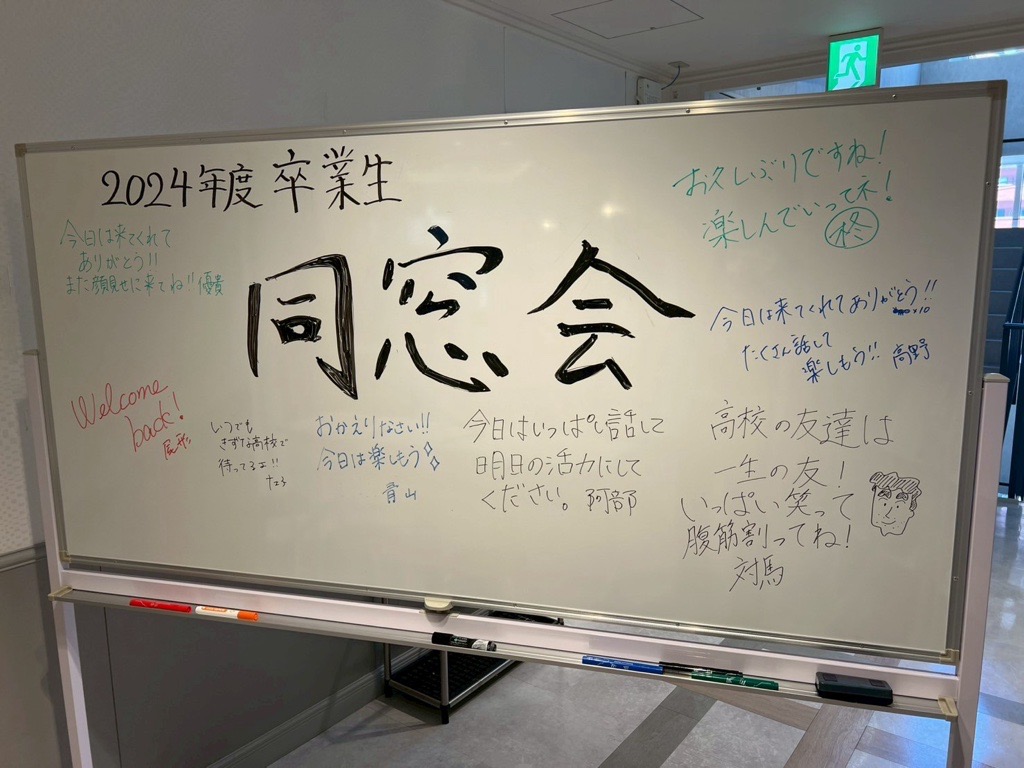 2024年度 卒業生
同窓会
今日は来てくれて
ありがとう!!
また顔見せに来てね!! 優貴
お久しぶりですね!
楽しんでいってネ!
終
今日は来てくれてありがとう!!
×10
たくさん話して
楽しもう!! 高野
Welcome
back!
尾形
いつでも
きずな高校で
待ってるよ!!
おかえりなさい!!
今日は楽しもう
青山
今日はいっぱい話して
明日の活力にして
ください。阿部
高校の友達は
一生の友!
いっぱい笑って
腹筋割ってね!
対馬